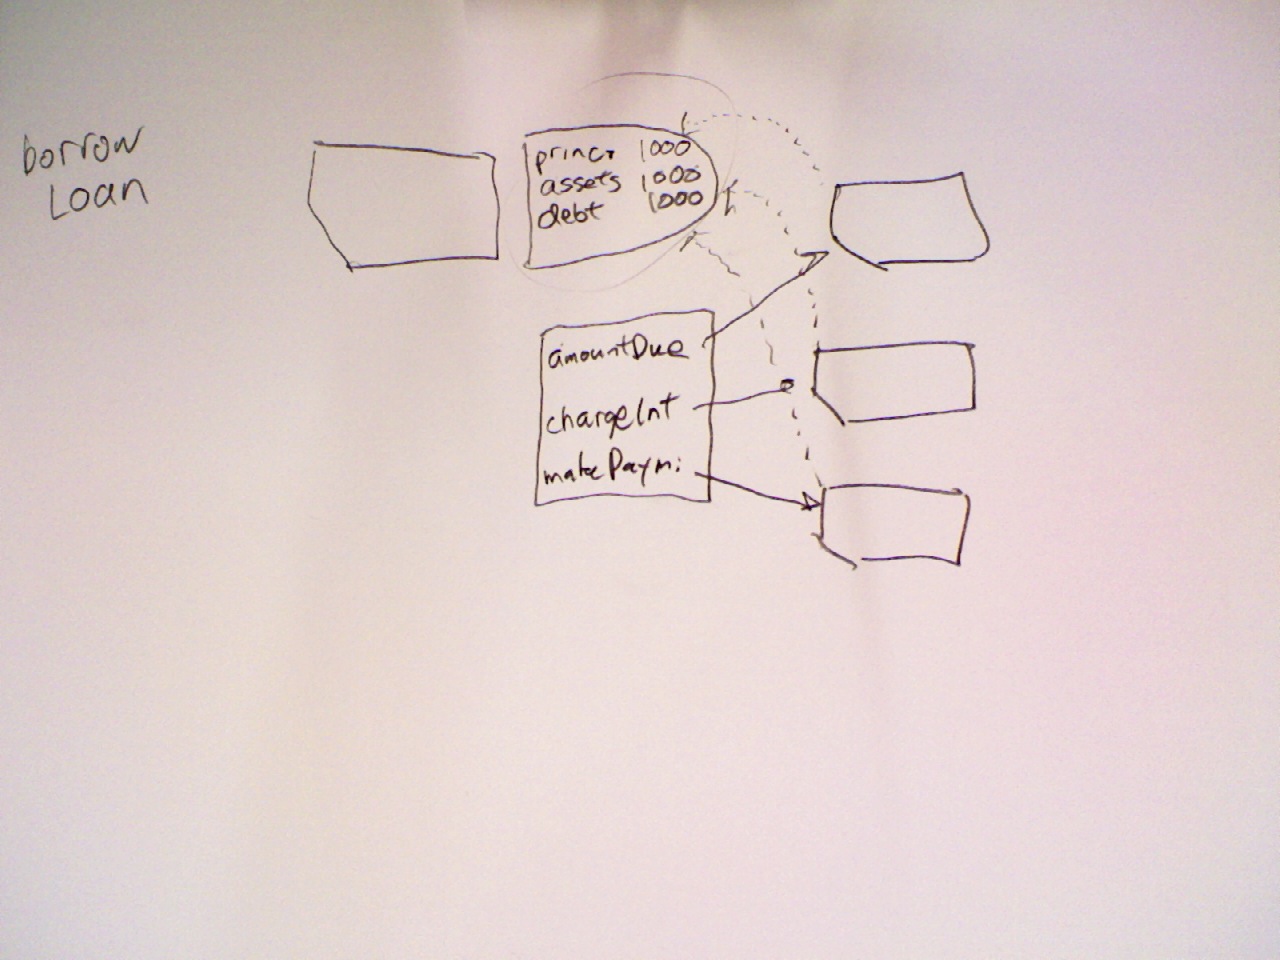 borrow
Loan
princr 1000
assets 1000
debt 1000
amountDue
chargeInt
makePaym